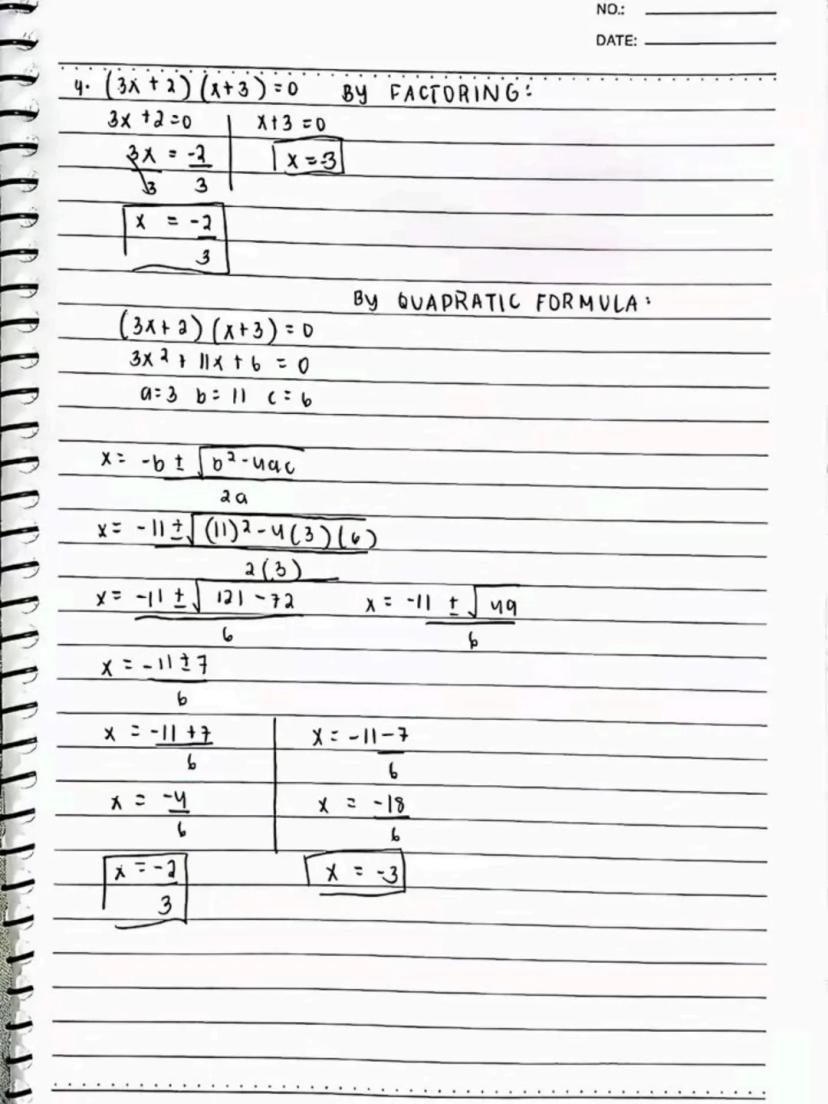 NO.:
DATE:
4. (3x + 2) (x+3) = 0 BY FACTORING:
3x + 2 = 0 x+3 = 0
3x = -2 x = -3
3 3
x = -2
3
BY QUADRATIC FORMULA:
(3x+2) (x+3) = 0
3x² + 11x + 6 = 0
a=3 b=11 c=6
x= -b ± √b²-4ac
2a
x= -11 ± √(11)²-4(3)(6)
2(3)
x= -11 ± √121-72 x= -11 ± √49
6 6
x = -11±7
6
x = -11+7 x= -11-7
6 6
x = -4 x = -18
6 6
x = -2 x = -3
3